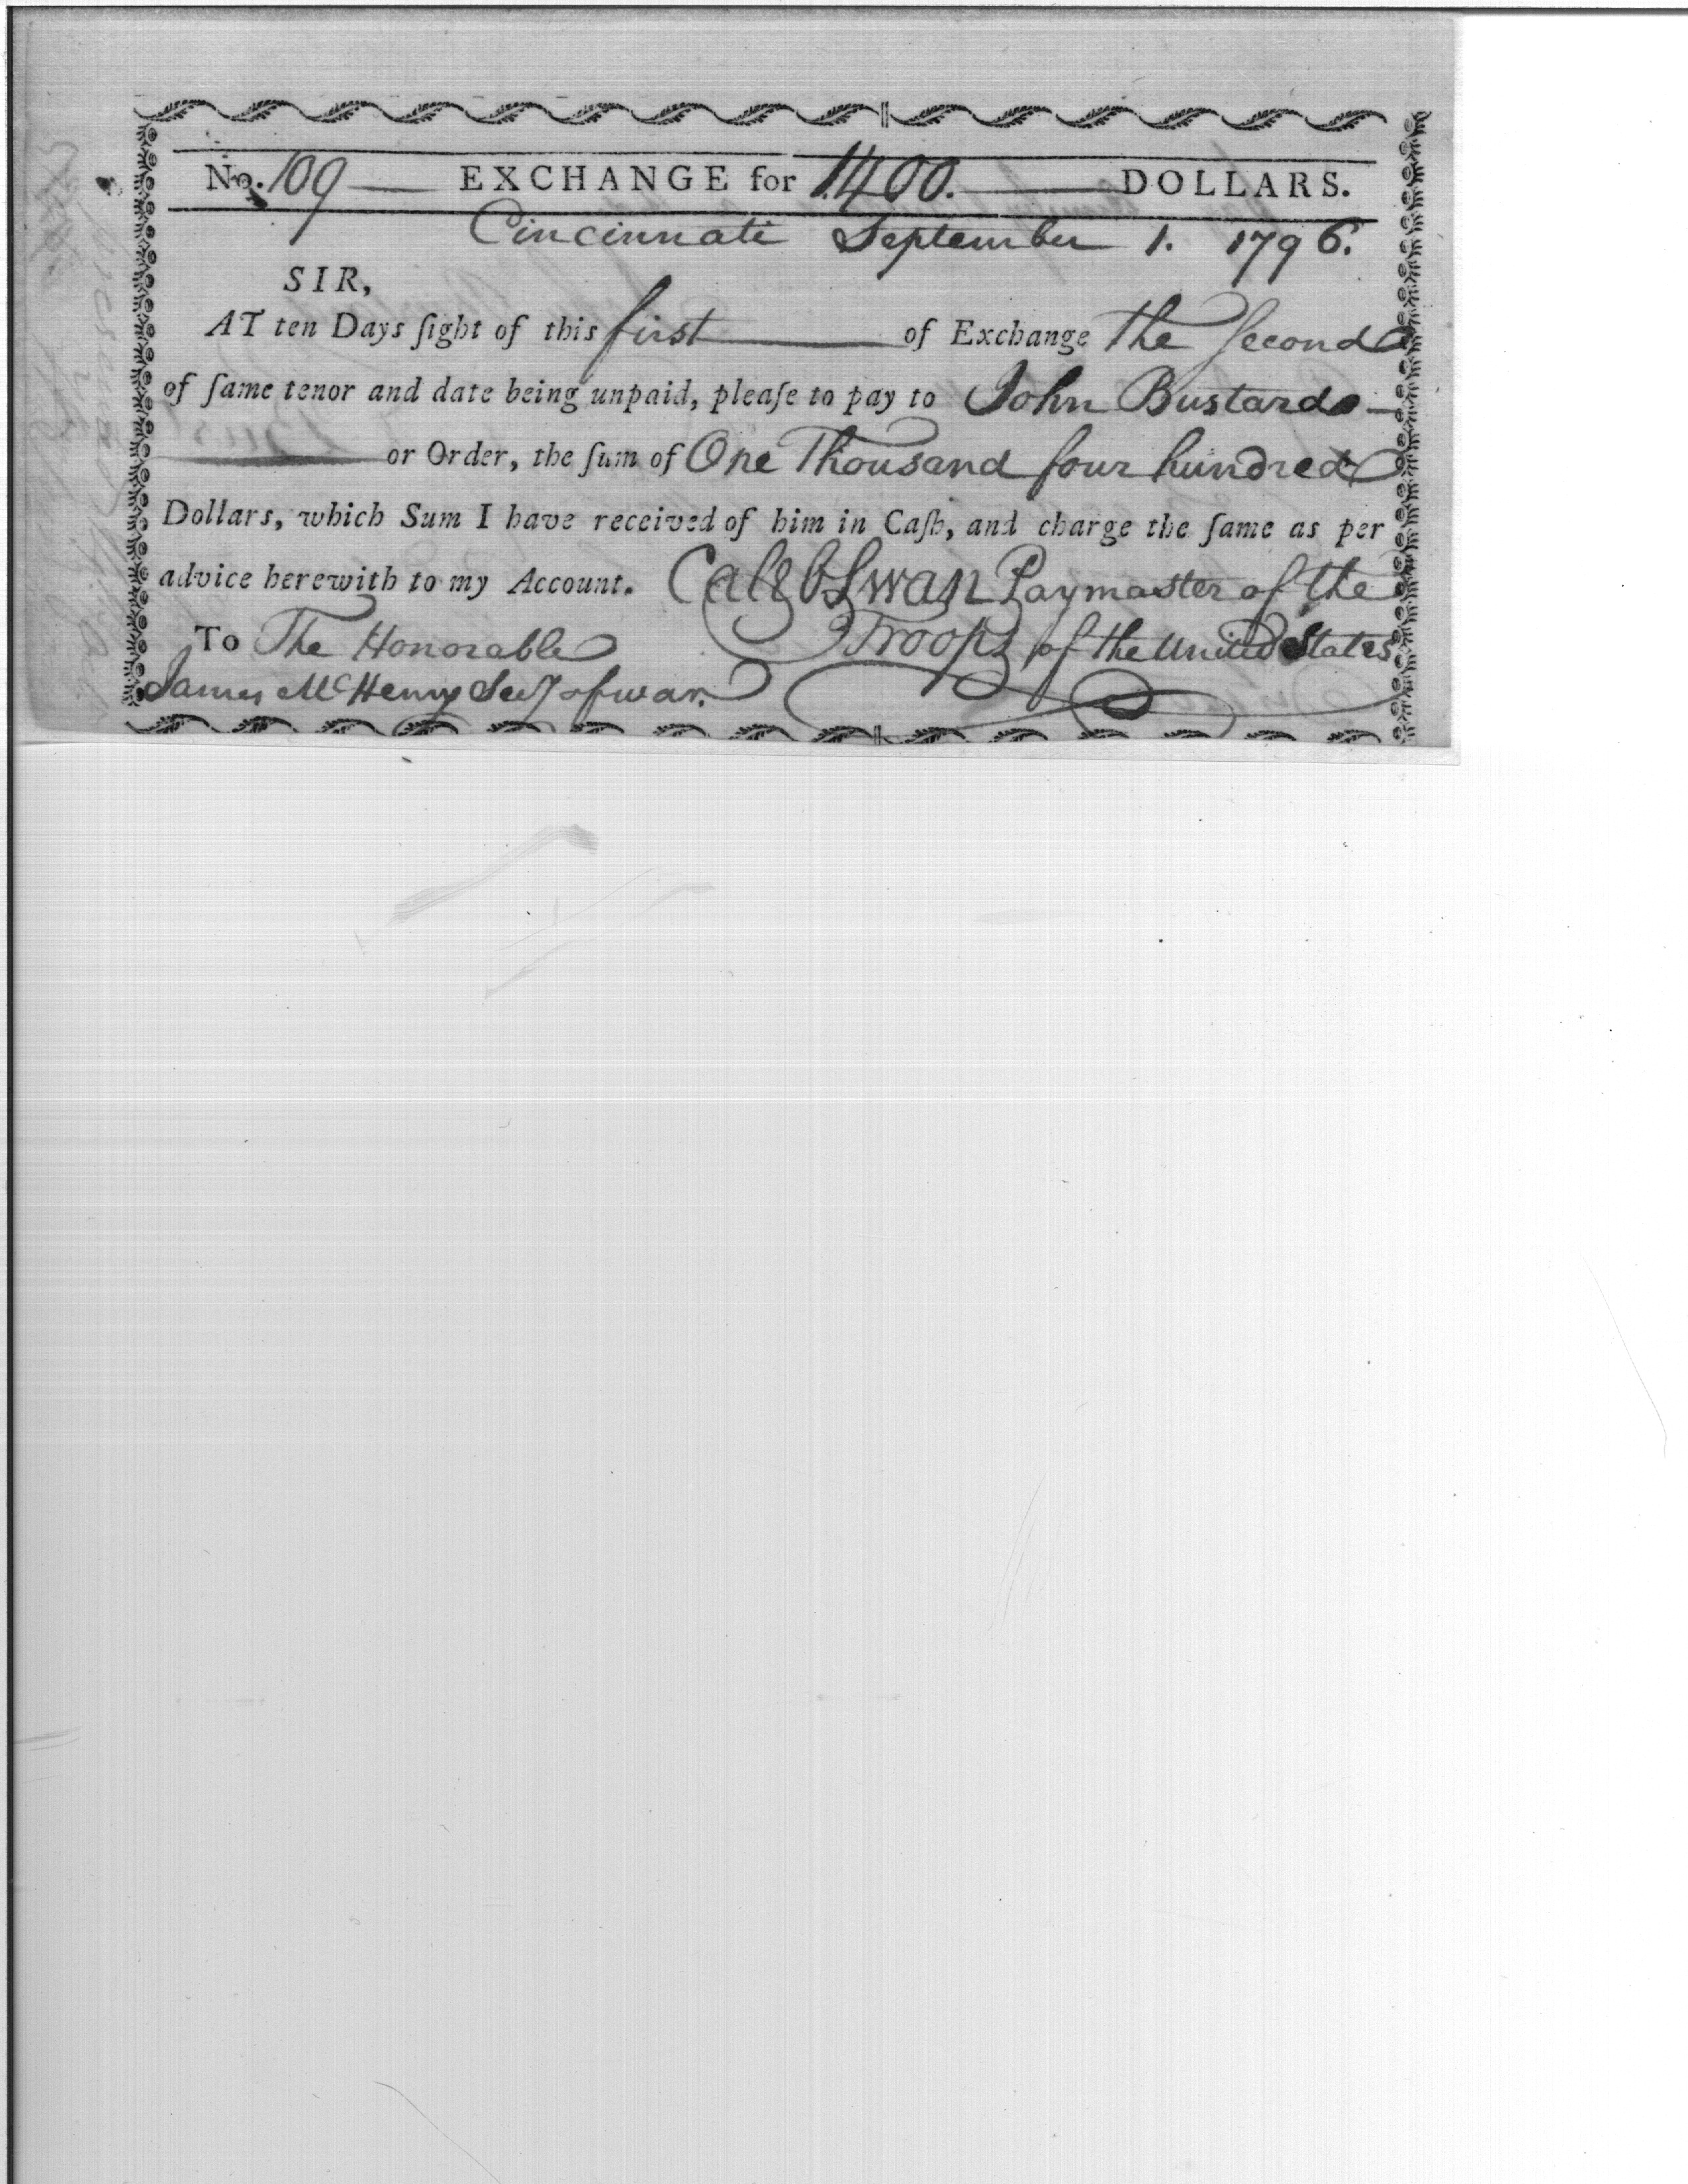 No. 109 EXCHANGE for 1400. DOLLARS.
Cincinnati September 1. 1796.
SIR,
AT ten Days ſight of this first of Exchange the Second
of ſame tenor and date being unpaid, pleaſe to pay to John Bustard
or Order, the ſum of One Thousand four hundred
Dollars, which Sum I have received of him in Caſh, and charge the ſame as per
advice herewith to my Account. Caleb Swan Paymaster of the
Troops of the United States
To The Honorable
James McHenry Secy of war.